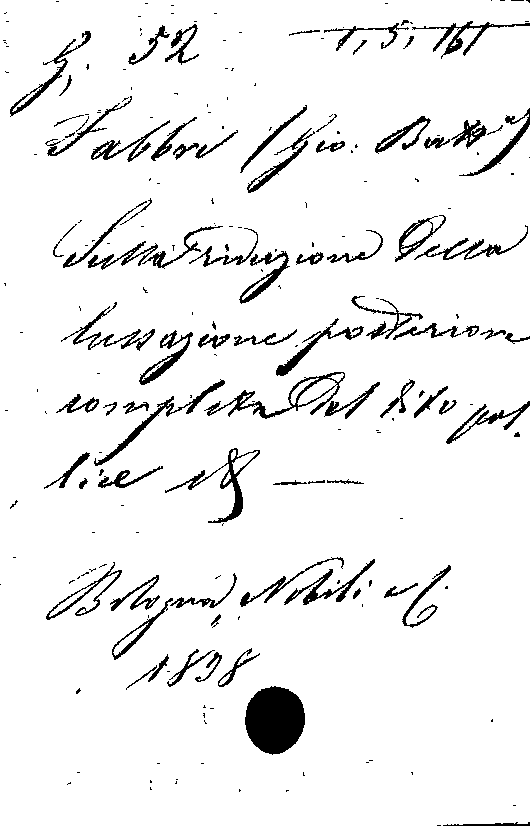 G. 52 1, 5, 161
Fabbri (Gio. Batt.a)
Sulla riduzione della
lussazione posteriore
completa del dito pol-
lice 18 —
Bologna, Nobili e C.
1838